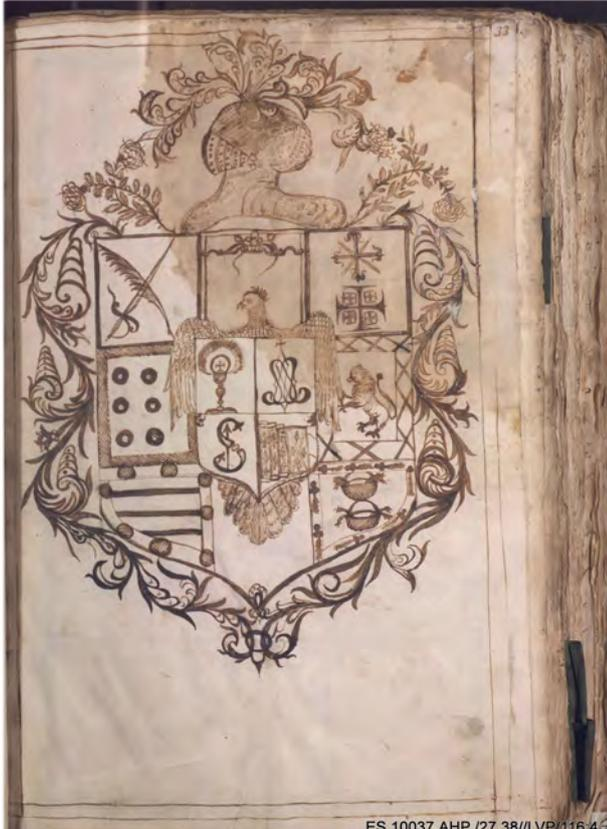 33
ES.10037.AHP./27.38//LVP/116:4-